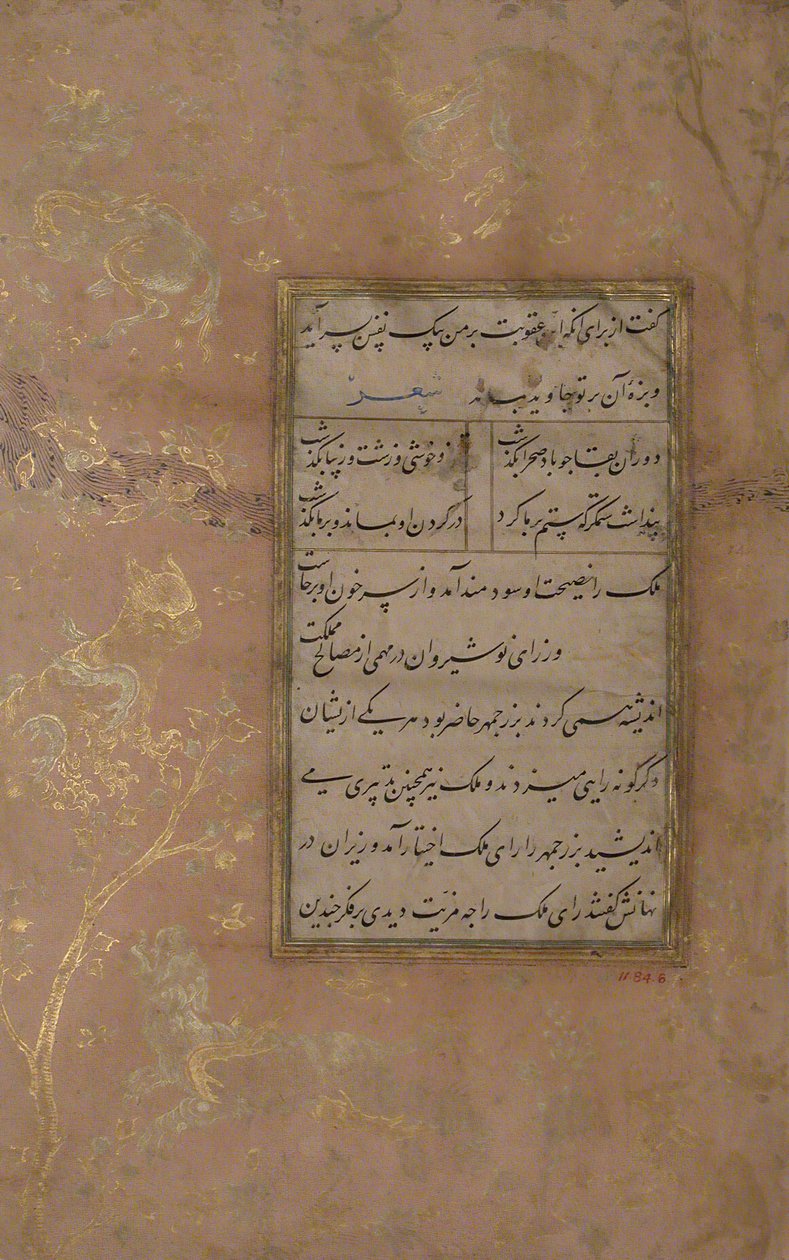 گفت از برای انکه این عقوبت بر من بیک نفس بسر آید
و بزهٔ آن بر تو جاوید بماند شعر
دوران بقا چو باد صحرا بگذشت
و خوشی و زشت و زیبا بگذشت
پنداشت ستمگر که ستم بر ما کرد
در گردن او بماند و بر ما بگذشت
ملک را نصیحت او سودمند آمد و از سر خون او برخاست
وزرای نوشیروان در مهمی از مصالح مملکت
اندیشه همی کردند بزرجمهر حاضر بود هر یکی از یشان
دگرگونه رایی میزدند و ملک نیز همچنین تدبیری می
اندیشید بزرجمهر را رای ملک اختیار آمد وزیران در
نهانش گفتند رای ملک را چه مزیّت دیدی بر فکر چندین
11 84.6